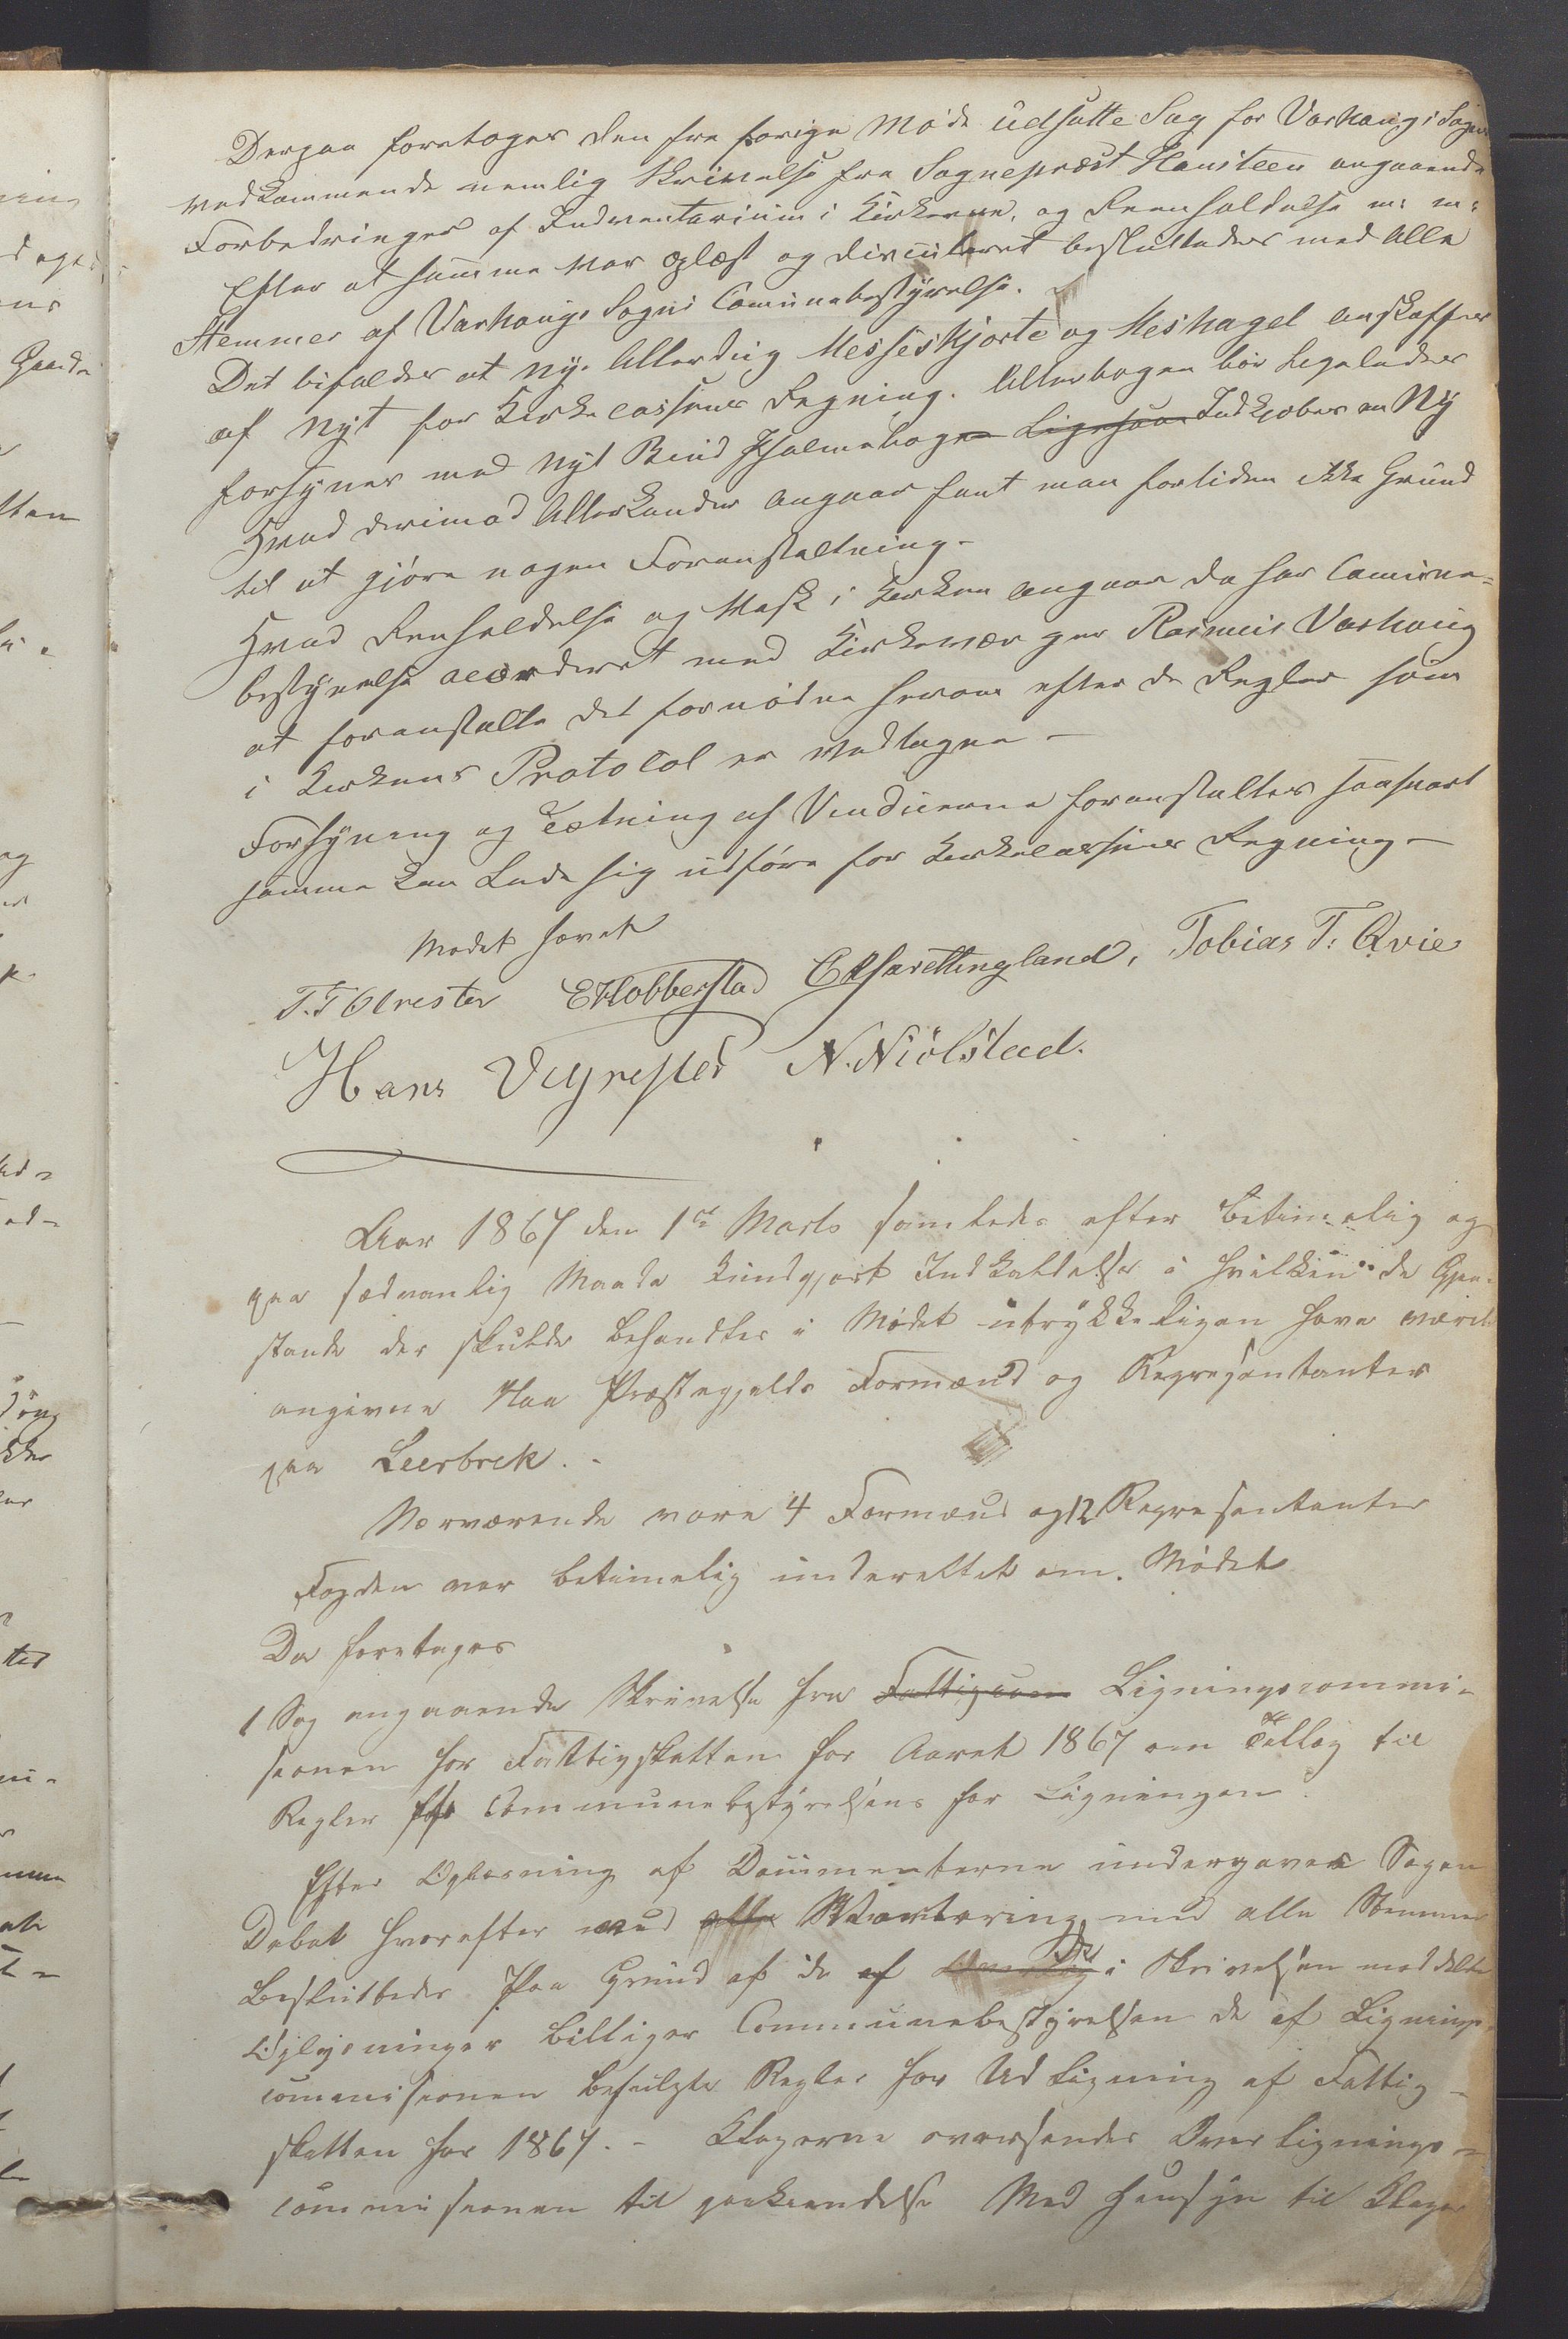 Derpaa foretoges den fra forige Møde udsatte Sag for Varhaugs Sogn
vedkommende nemlig Skrivelse fra Sognepræst Hansteen angaaende
Forbedringer af Indventarium i Kirkerne, og Reenholdelse m: m:
Efter at samme var oplæst og discuteret besluttedes med alle
Stemmer af Varhaugs Sogns Comunebestyrelse.
Det bifaldes at nye Alterdug Messeskjorte og Meshagel anskaffes
af Nyt for Kirkecassens Regning. Alterbogen bør ligeledes
forsynes med nyt Bind Psalmebogen Ligesaa Indkjøbes en Ny
Hvad derimod Alterkander angaar fant man fortiden ikke Grund
til at gjøre nogen Foranstaltning.
Hvad Renholdelse og Vask i Kirken angaar da har Comune=
bestyrelse accorderet med Kirkeværger Rasmus Varhaug
at foranstalte det fornødne herom efter de Regler som
i Kirkens Protocol er vedtagen –
Forsyning og Tætning af Vinduerne foranstaltes saasnart
samme kan Lade sig udføre for Kirkecassens Regning –
Mødet hævet
T. T Obrestad E Hobberstad Tobias T: Qvie
Hans Vigrestad N. Niölstad.
Aar 1867 den 1ste Marts samledes efter betimelig og
paa sædvanlig Maade kundgjort Indkaldelse i hvilken de Gjen-
stande der skulde behandles i Mødet utrykkeligen have været
angivne Haa Præstegjelds Formænd og Repræsentanter
paa Leerbrek.
Nærværende vare 4 Formænd og 12 Representanter
Fogden var betimelig underettet om Mødet
Da foretoges
1 Sag angaaende Skrivelse fra Fattigcom Ligningscommi-
sionen for Fattigskatten for Aaret 1867 om Tillæg til
Regler for Communebestyrelsens for Ligningen.
Efter Oplæsning af Documenterne undergaves Sagen
Debat hvorefter ved alle Votering med alle Stemmer
Besluttedes Paa Grund af de af i Skrivelsen meddelte
Oplysninger billiger Communebestyrelsen de af Lignings-
commisionen befulgte Regler for Udligning af Fattig-
skatten for 1867. – Klagerne oversendes Overlignings-
commisionen til paakjendelse Med Hensyn til Klager